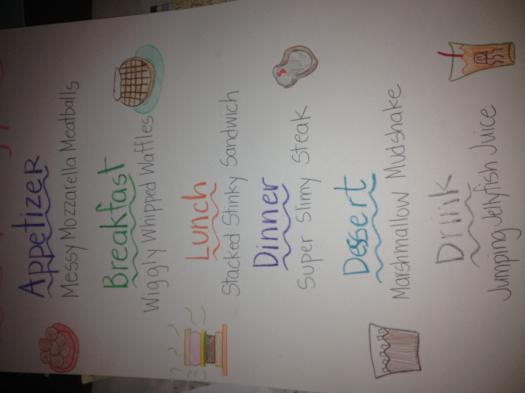 Appetizer
Messy Mozzarella Meatballs
Breakfast
Wiggly Whipped Waffles
Lunch
Stacked Stinky Sandwich
Dinner
Super Slimy Steak
Dessert
Marshmallow Mudshake
Drink
Jumping Jellyfish Juice